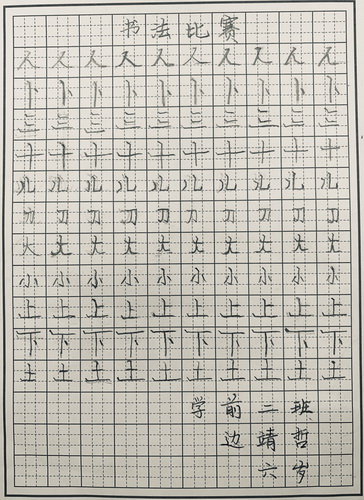 书法比赛
人人人人人人人人人人
卜卜卜卜卜卜卜卜卜卜
三三三三三三三三三三
十十十十十十十十十十
儿儿儿儿儿儿儿儿儿儿
刀刀刀刀刀刀刀刀刀刀
大大大大大大大大大大
小小小小小小小小小小
上上上上上上上上上上
下下下下下下下下下下
土土土土土土土土土土
学前二班
边靖哲
六岁